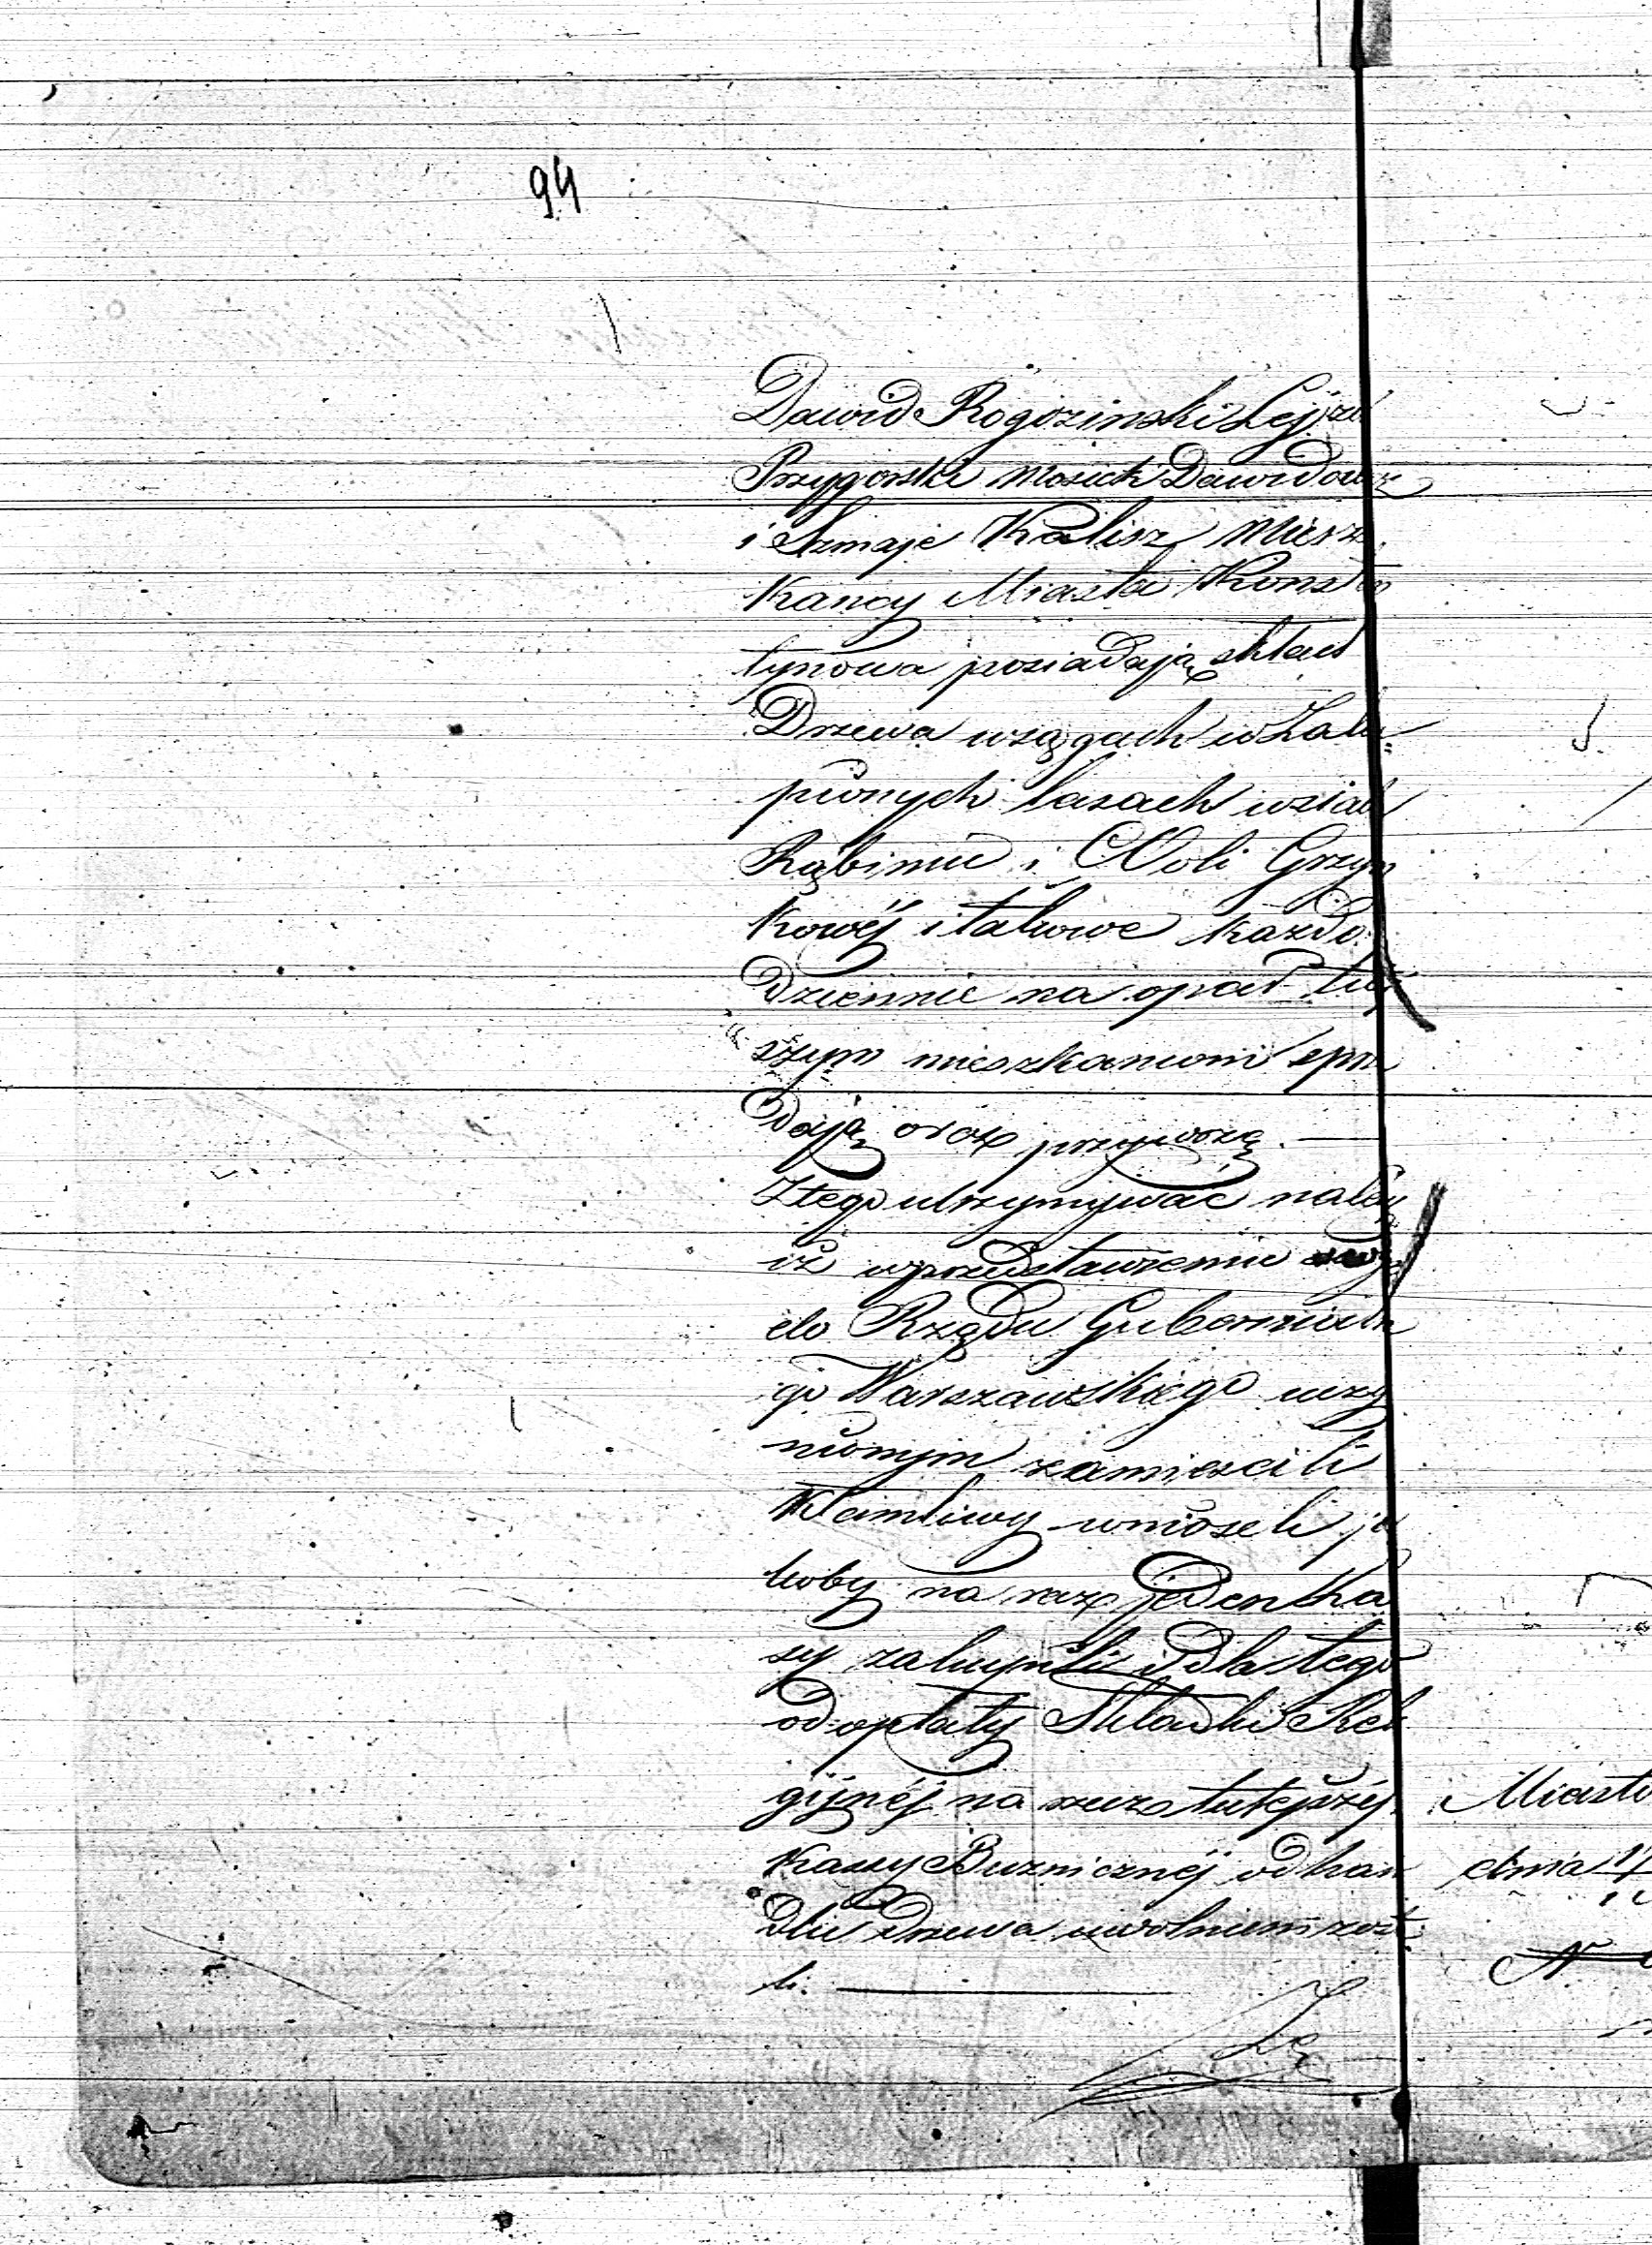 94
Dawid Rogozinski Lejzer
Przygorski Mosiek Dawidowicz
i Szmaje Kalisz Miesz
kancy Miasta Konstan
tynowa posiadają skład
Drzewa wsągach w Zaku
pionych lasach wsiach
Rąbiniu i Woli Grzym
kowéj i takowe każdo
dziennie na opał tutéj
szym mieszkańcom sprze
dają oraz przywożą. —
Ztego utrzymywać należy
iż wprzedstawieniu
do Rządu Gubernialne
go Warszawskiego uczy
nionym zamieścili
Kłamliwy wniosek ja
koby na raz jeden
sy zakupili i dla tego
od opłaty Składki Reli
gijnéj na rzecz tutejszéj
Kassy Buzniczney od han
dlu Drzewa uwolnieni zosta
li. —
Miasto
dnia 17